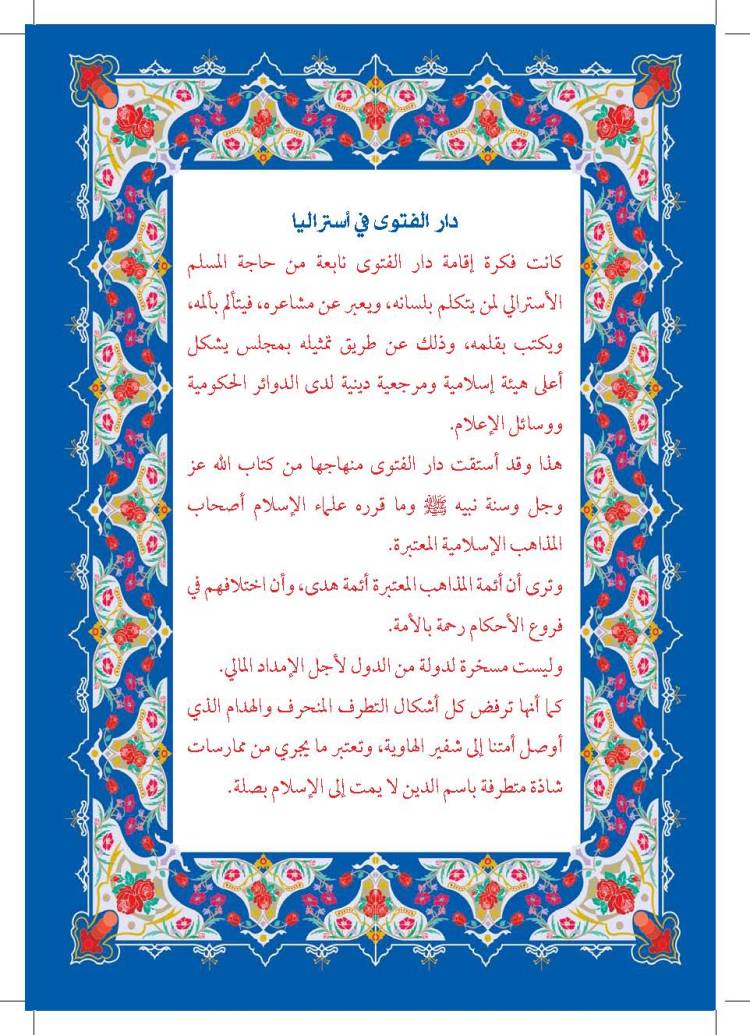 دار الفتوى في أستراليا
كانت فكرة إقامة دار الفتوى نابعة من حاجة المسلم
الأسترالي لمن يتكلم بلسانه، ويعبر عن مشاعره، فيتألم بألمه،
ويكتب بقلمه، وذلك عن طريق تمثيله بمجلس يشكل
أعلى هيئة إسلامية ومرجعية دينية لدى الدوائر الحكومية
ووسائل الإعلام.
هذا وقد أستقت دار الفتوى منهاجها من كتاب الله عز
وجل وسنة نبيه ﷺ وما قرره علماء الإسلام أصحاب
المذاهب الإسلامية المعتبرة.
وترى أن أئمة المذاهب المعتبرة أئمة هدى، وأن اختلافهم في
فروع الأحكام رحمة بالأمة.
وليست مسخرة لدولة من الدول لأجل الإمداد المالي.
كما أنها ترفض كل أشكال التطرف المنحرف والهدام الذي
أوصل أمتنا إلى شفير الهاوية، وتعتبر ما يجري من ممارسات
شاذة متطرفة باسم الدين لا يمت إلى الإسلام بصلة.